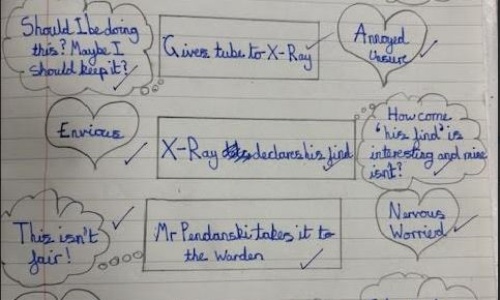 Should I be doing
this? Maybe I
should keep it?
Gives tube to X-Ray
Annoyed
Unsure
Envious
X-Ray declares his find
How come
'his find' is
interesting and mine
isnt?
This isn't
fair!
Mr Pendanski takes it to
the Warden
Nervous
Worried